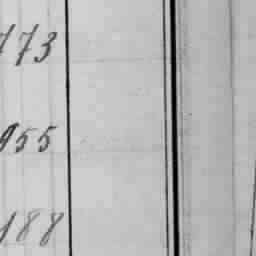 173
955
188